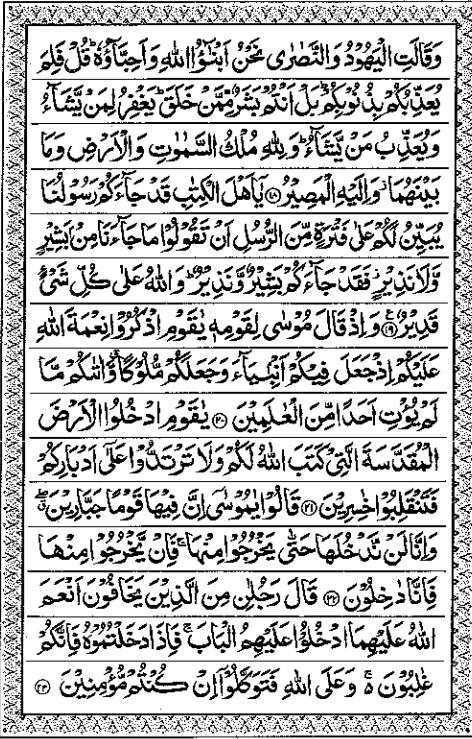 وَقَالَتِ الْيَهُوْدُ وَالنَّصٰرٰى نَحْنُ اَبْنٰٓؤُا اللّٰهِ وَاَحِبَّآؤُهٗ ؕ قُلْ فَلِمَ
يُعَذِّبُكُمْ بِذُنُوْبِكُمْ ؕ بَلْ اَنْتُمْ بَشَرٌ مِّمَّنْ خَلَقَ ؕ يَغْفِرُ لِمَنْ يَّشَآءُ
وَيُعَذِّبُ مَنْ يَّشَآءُ ؕ وَلِلّٰهِ مُلْكُ السَّمٰوٰتِ وَالْاَرْضِ وَمَا
بَيْنَهُمَا ؗ وَاِلَيْهِ الْمَصِيْرُ ﴿۱۸﴾ يٰۤاَهْلَ الْكِتٰبِ قَدْ جَآءَكُمْ رَسُوْلُنَا
يُبَيِّنُ لَكُمْ عَلٰى فَتْرَةٍ مِّنَ الرُّسُلِ اَنْ تَقُوْلُوْا مَا جَآءَنَا مِنْۢ بَشِيْرٍ
وَّلَا نَذِيْرٍ ؗ فَقَدْ جَآءَكُمْ بَشِيْرٌ وَّنَذِيْرٌ ؕ وَاللّٰهُ عَلٰى كُلِّ شَىْءٍ
قَدِيْرٌ ﴿۱۹﴾ وَاِذْ قَالَ مُوْسٰى لِقَوْمِهٖ يٰقَوْمِ اذْكُرُوْا نِعْمَةَ اللّٰهِ
عَلَيْكُمْ اِذْ جَعَلَ فِيْكُمْ اَنْۢبِيَآءَ وَجَعَلَكُمْ مُّلُوْكًا ۗ وَّاٰتٰىكُمْ مَّا
لَمْ يُؤْتِ اَحَدًا مِّنَ الْعٰلَمِيْنَ ﴿۲۰﴾ يٰقَوْمِ ادْخُلُوا الْاَرْضَ
الْمُقَدَّسَةَ الَّتِىْ كَتَبَ اللّٰهُ لَكُمْ وَلَا تَرْتَدُّوْا عَلٰٓى اَدْبَارِكُمْ
فَتَنْقَلِبُوْا خٰسِرِيْنَ ﴿۲۱﴾ قَالُوْا يٰمُوْسٰٓى اِنَّ فِيْهَا قَوْمًا جَبَّارِيْنَ ۖ
وَاِنَّا لَنْ نَّدْخُلَهَا حَتّٰى يَخْرُجُوْا مِنْهَا ۚ فَاِنْ يَّخْرُجُوْا مِنْهَا
فَاِنَّا دٰخِلُوْنَ ﴿۲۲﴾ قَالَ رَجُلٰنِ مِنَ الَّذِيْنَ يَخَافُوْنَ اَنْعَمَ
اللّٰهُ عَلَيْهِمَا ادْخُلُوْا عَلَيْهِمُ الْبَابَ ۚ فَاِذَا دَخَلْتُمُوْهُ فَاِنَّكُمْ
غٰلِبُوْنَ ۚ وَعَلَى اللّٰهِ فَتَوَكَّلُوْٓا اِنْ كُنْتُمْ مُّؤْمِنِيْنَ ﴿۲۳﴾